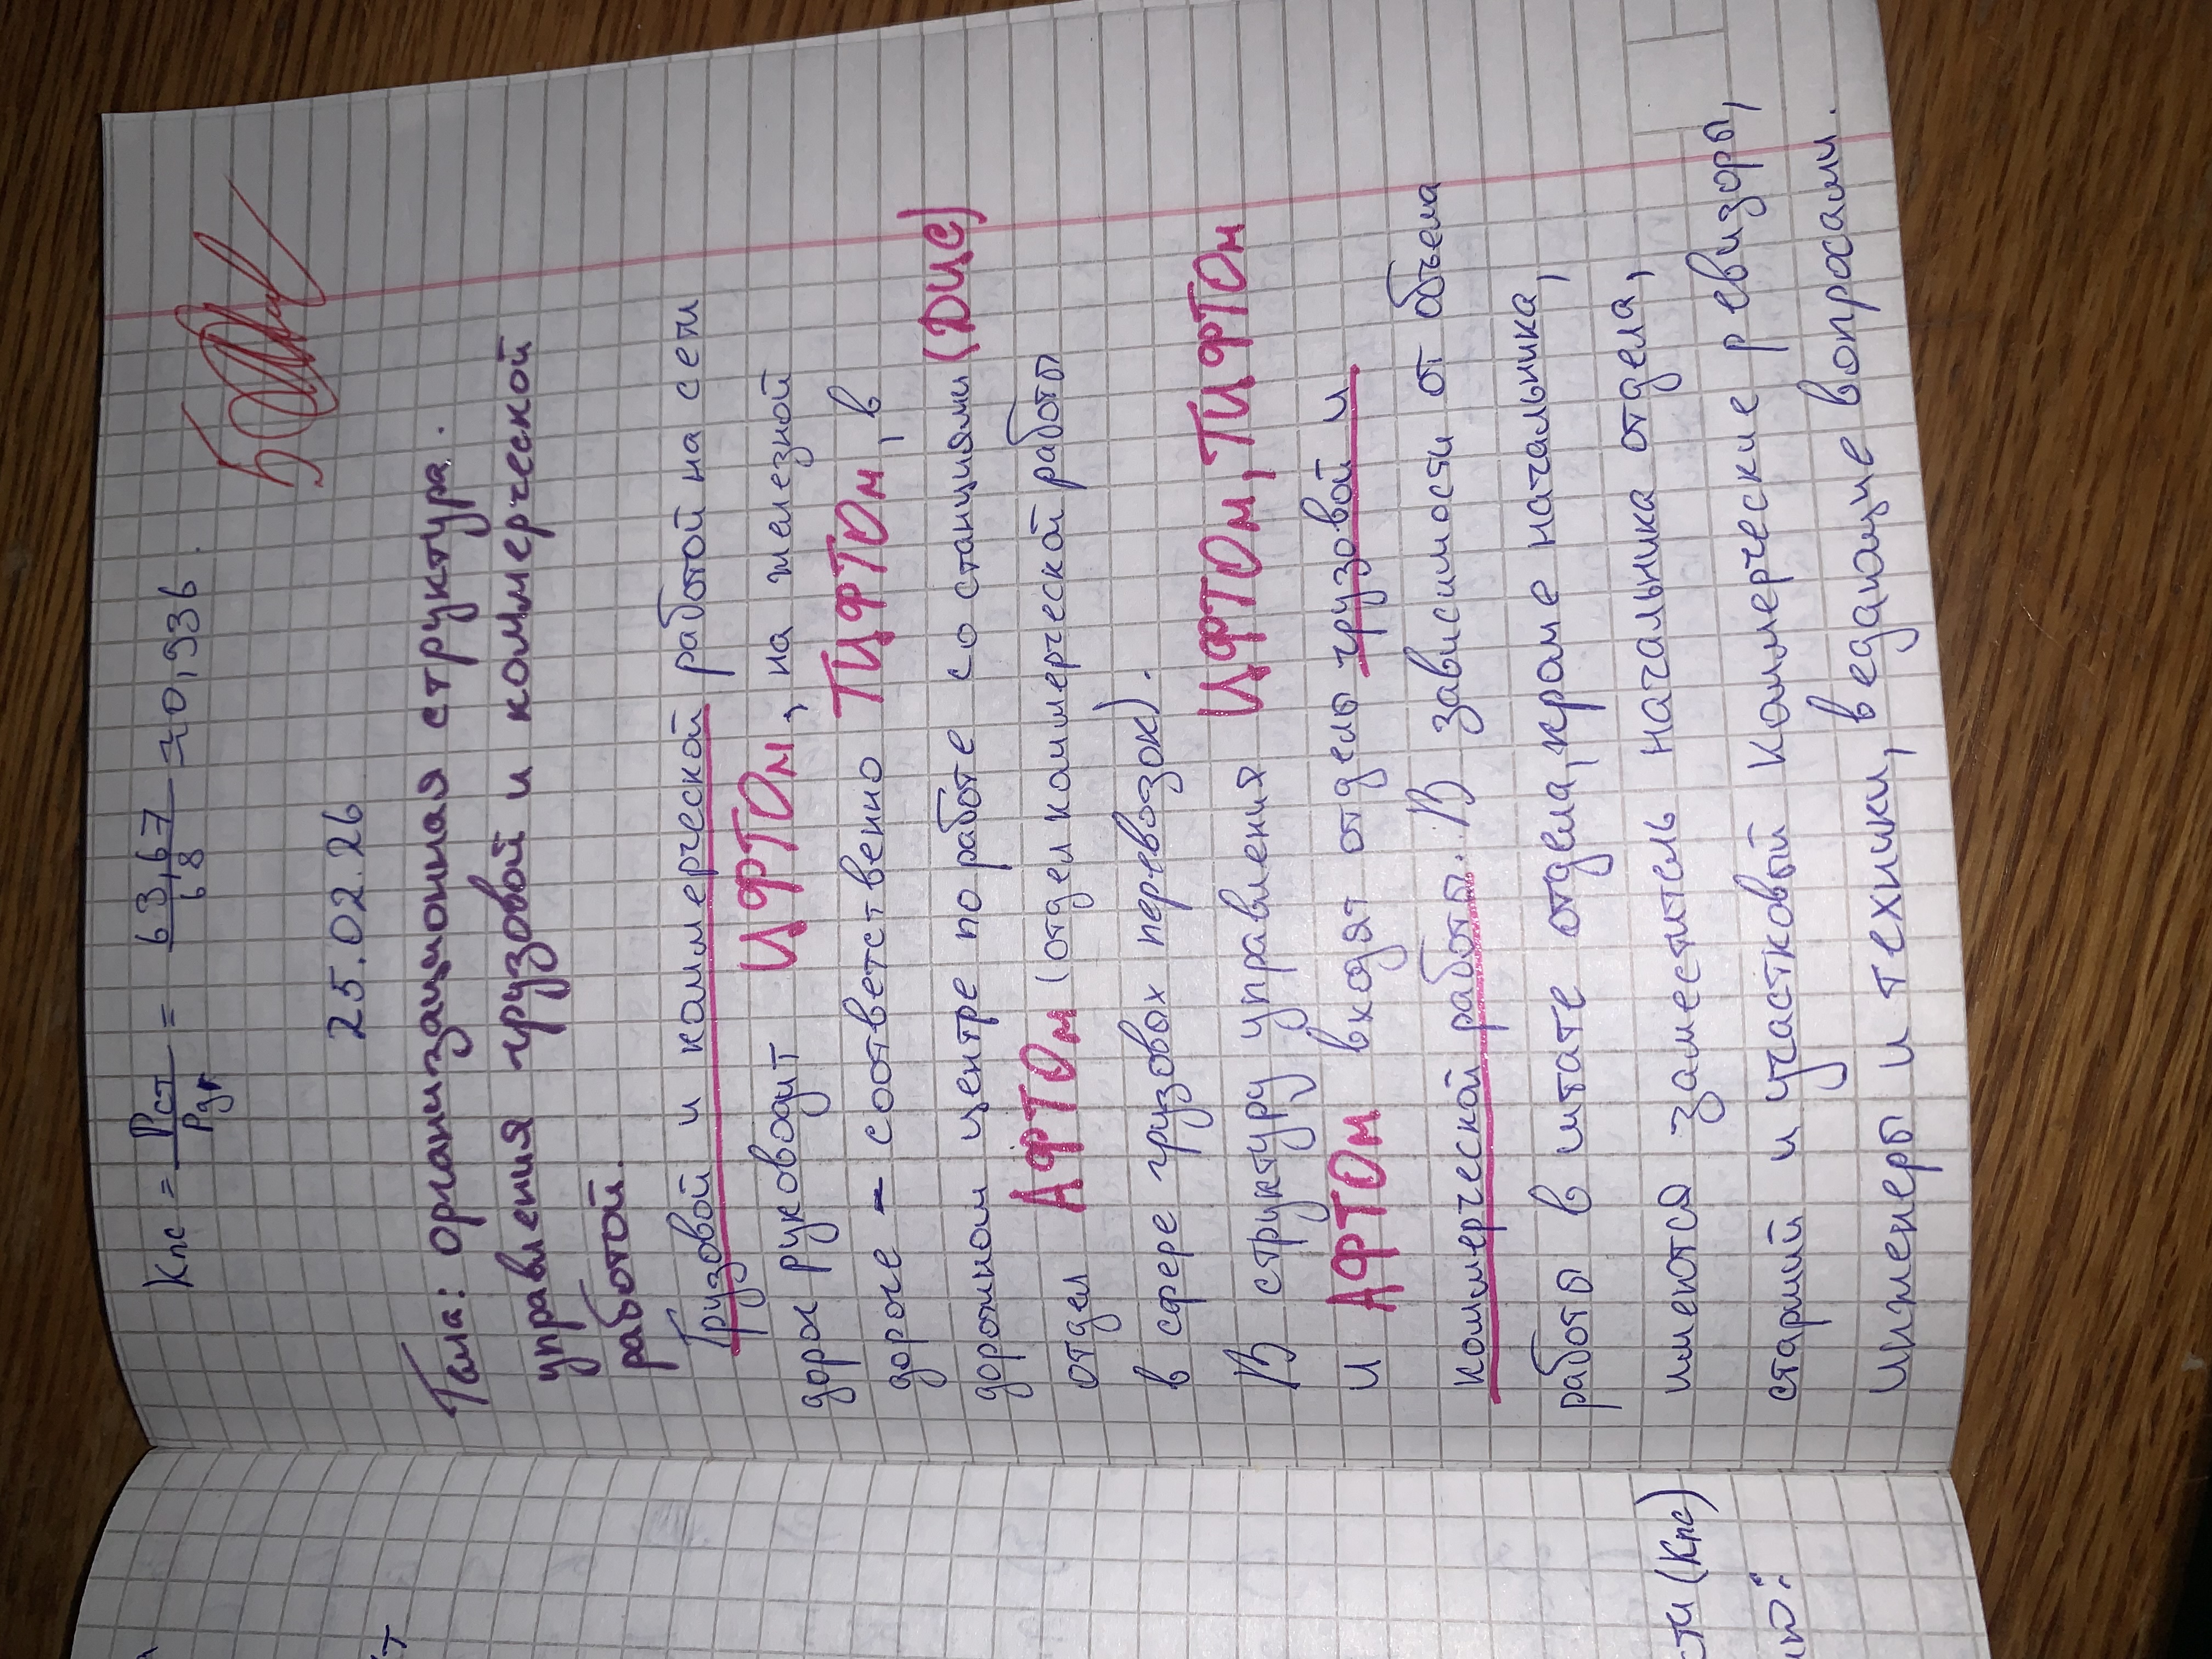 Кпс = Рст / Рдг = 63,67 / 68 = 0,936.
25.02.26
Тема: организационная структура.
управления грузовой и коммерческой
работой.
Грузовой и коммерческой работой на сети
дорог руководит ЦФТОм, на железной
дороге - соответственно ТЦФТОм, в
дорожном центре по работе со станциями (ДЦС)
отдел АФТОм (отдел коммерческой работы
в сфере грузовых перевозок).
В структуру управления ЦФТОм, ТЦФТОм
и АФТОм входят отделы грузовой и
коммерческой работы. В зависимости от объема
работы в штате отдела, кроме начальника,
имеются заместитель начальника отдела,
старший и участковый коммерческие ревизоры,
инженеры и техники, ведающие вопросами.
сти (Кпс)